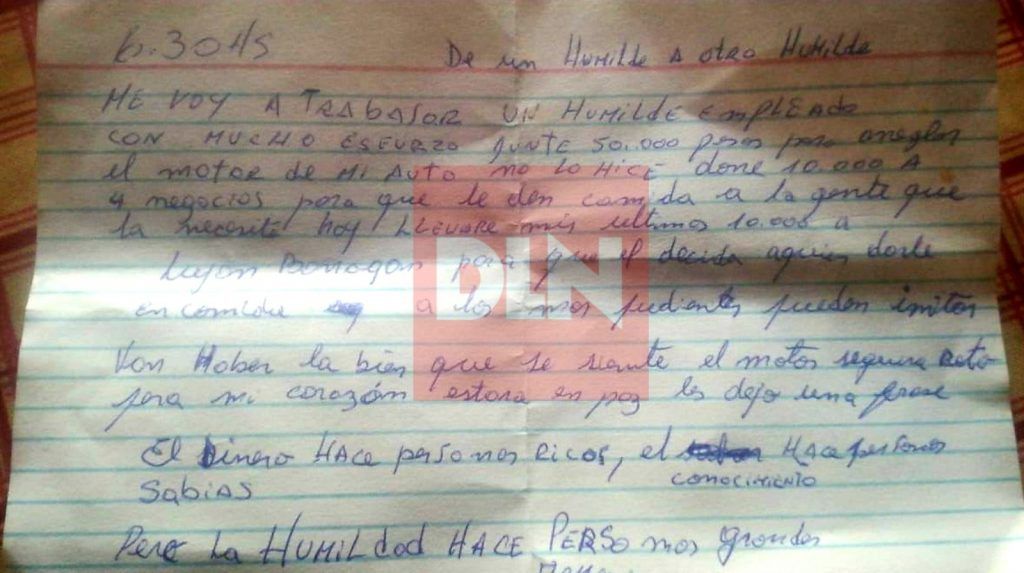 6.30 HS De un HUMILde A otro HUMILde
ME VOY A TRABAJOR UN HUMILDE EMPLEADO
CON MUCHO ESFURZO JUNTE 50.000 pesos para areglar
el motor de Mi Auto no lo Hice done 10.000 A
4 negocios para que le den comida a la gente que
la necesite hoy LLEVARE mis ultimos 10.000 a
Lujan Barragan para que el decida aquien darle
en comida a los mas pudientes pueden imitar
Van Haber la bien que se siente el motor seguira Roto
pera mi corazón estara en paz les dejo una frase
El Dinero HACE personas Ricos, el HACE personas
CONOCIMIENTO
SabiAS
Pero La HUMILdad HACE PERSonas grandes
DLN